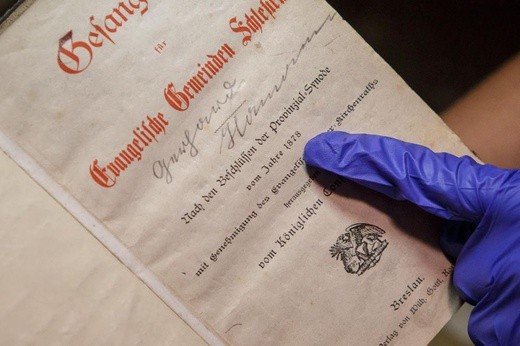 Gesang
für
Evangelische Gemeinden Schlesi
Gerhard
Nach den Beschlüssen der Provinzial-Synode
vom Jahre 1878
mit Genehmigung des Evangelis er-Kirchenraths
herausgege
vom Königlichen Con
Breslau.
Verlag von Wilh. Gottl.